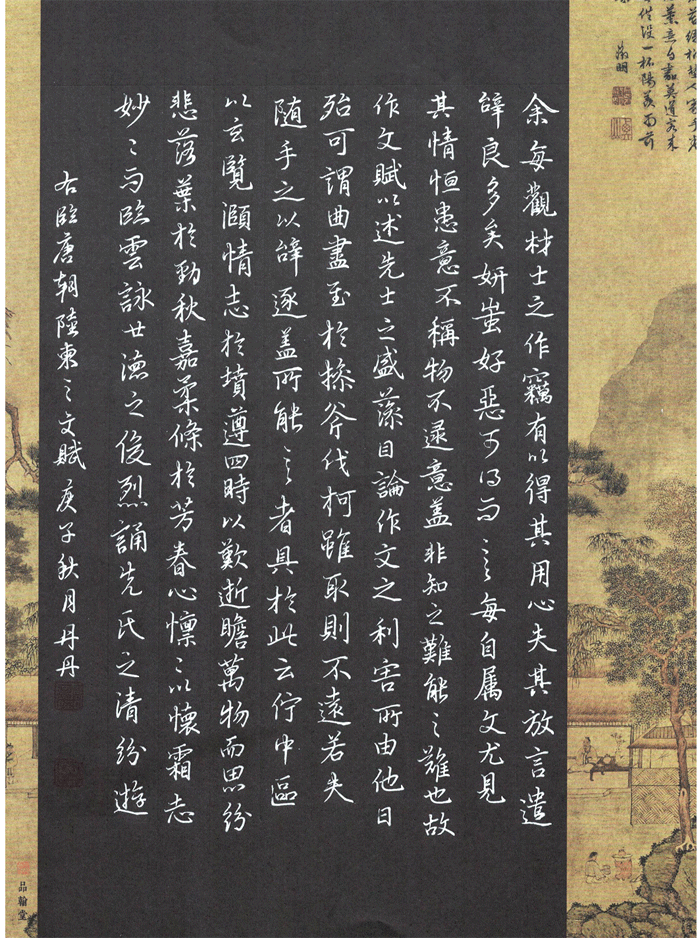 余每觀材士之作竊有以得其用心夫其放言遣
辝良多矣妍蚩好惡可得而言每自属文尤見
其情恒患意不稱物不逮意盖非知之難能〻難也故
作文賦以述先士之盛藻因論作文之利害所由他日
殆可謂曲盡至於操斧伐柯雖取則不遠若夫
随手之以辝逐盖所能言者具於此云佇中區
以玄覽頤情志於墳遵四時以歎逝瞻萬物而思紛
悲落葉於勁秋嘉柔條於芳春心懍〻以懷霜志
妙〻而臨雲詠世德之俊烈誦先氏之清紛遊
右臨唐朝陸柬之文賦庚子秋月丹丹
莫道客來
供設一杯陽羨雨前
徵明
品翰堂